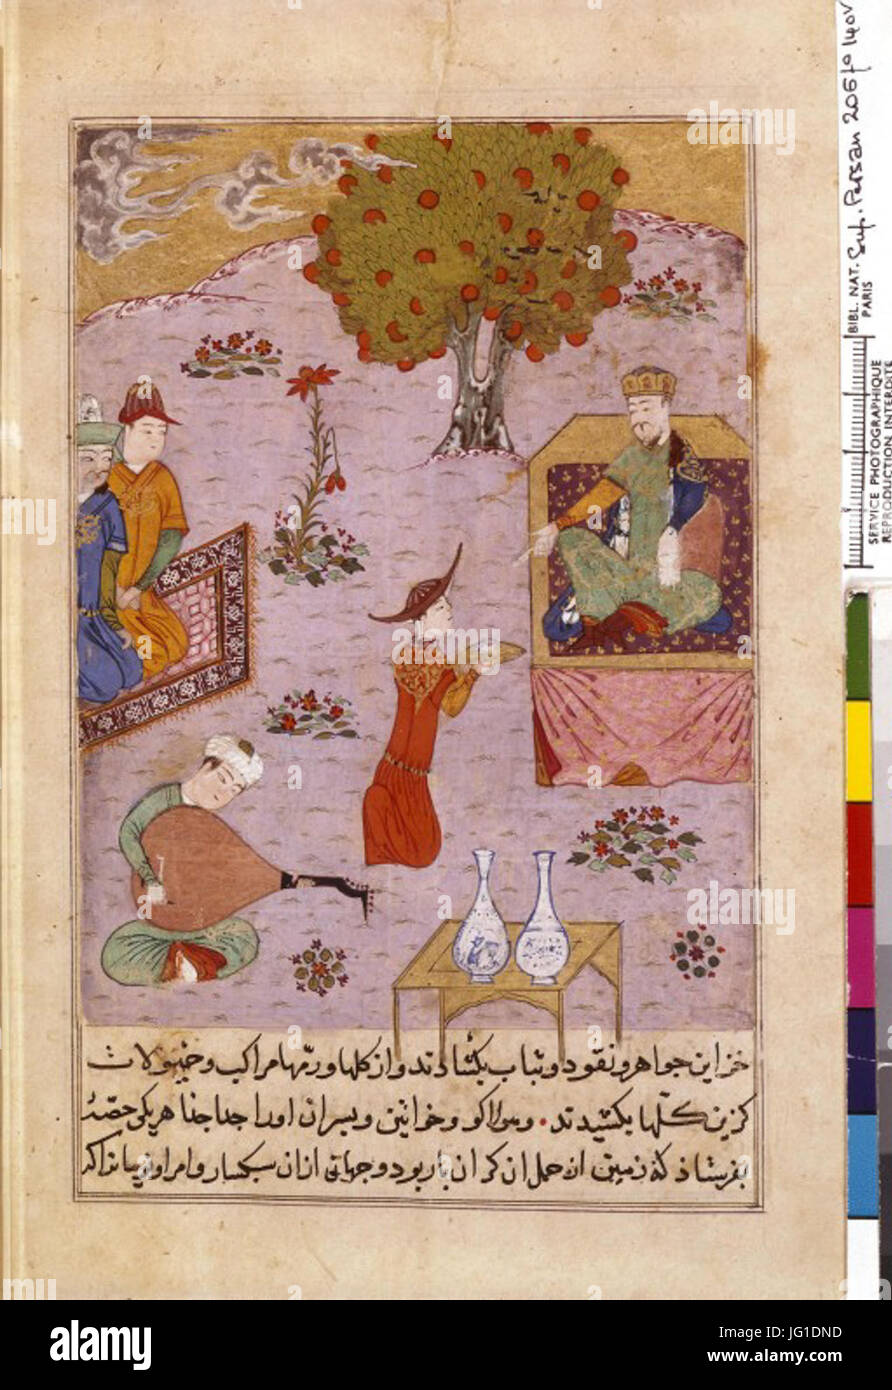 خزاین جواهر و نقود و ثیاب بکشادند و از کلها و رمها مراکب و حمولات
کزین کلها بکشیدند • و هولاکو و خواتین و پسران اورا جدا جدا هر یکی حصهٔ
بفرستاد که زمین از حمل آن کران بار بود و جهانی از آن سبکسار و امرا و
BIBL. NAT. Sup. Persan 206 fo 140v
PARIS
SERVICE PHOTOGRAPHIQUE
REPRODUCTION INTERDITE
alamy stock photo
a
alamy
Image ID: JG1DND
www.alamy.com